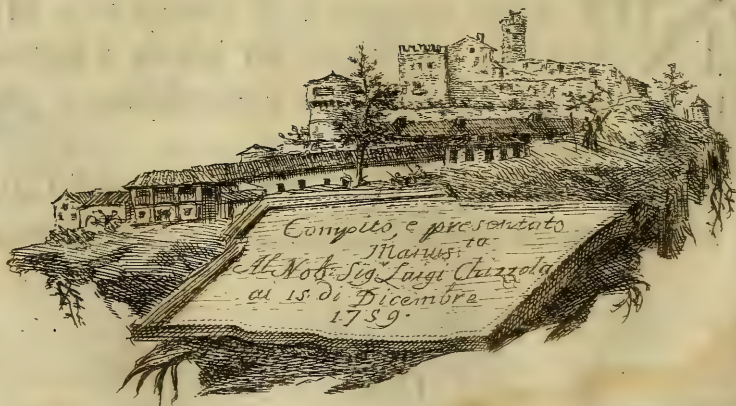 Compito, e presentato
Manus.ta
Al Nob: Sig. Luigi Chizzola
ai 15. di Dicembre
1759.